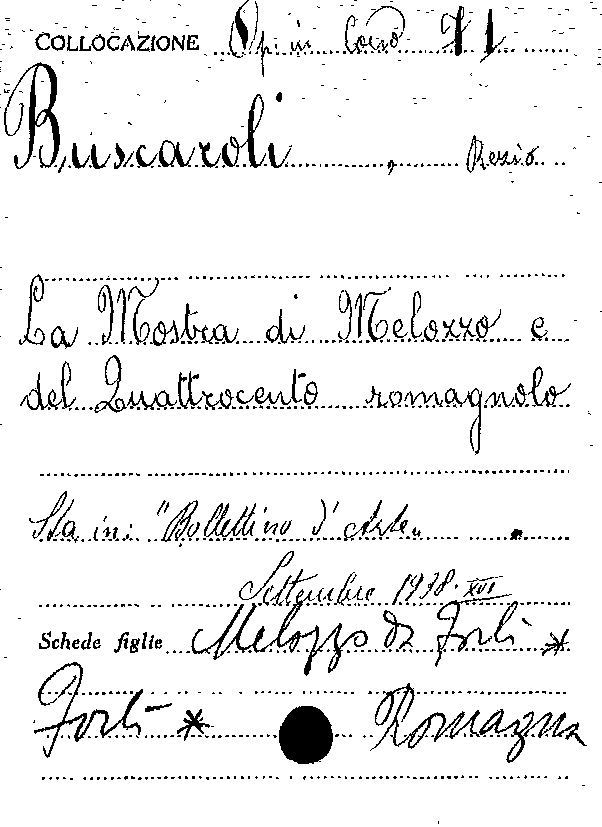 COLLOCAZIONE Op. in Corso
Buscaroli, Rezio
La Mostra di Melozzo e
del Quattrocento romagnolo
Sta in: "Bollettino d'Arte"
Settembre 1938. XVI
Schede figlie Melozzo da Forlì *
Forlì * Romagna